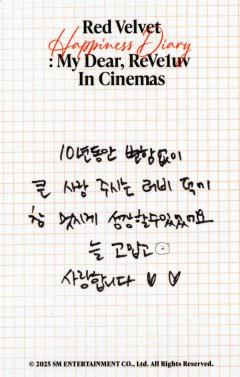 Red Velvet
Happiness Diary
: My Dear, ReVe1uv
In Cinemas
10년동안 변함없이
큰 사랑 주시는 러비 덕에
참 멋지게 성장할 수 있었어요
늘 고맙고
사랑합니다 ♥ ♥
© 2025 SM ENTERTAINMENT CO., Ltd. All Rights Reserved.